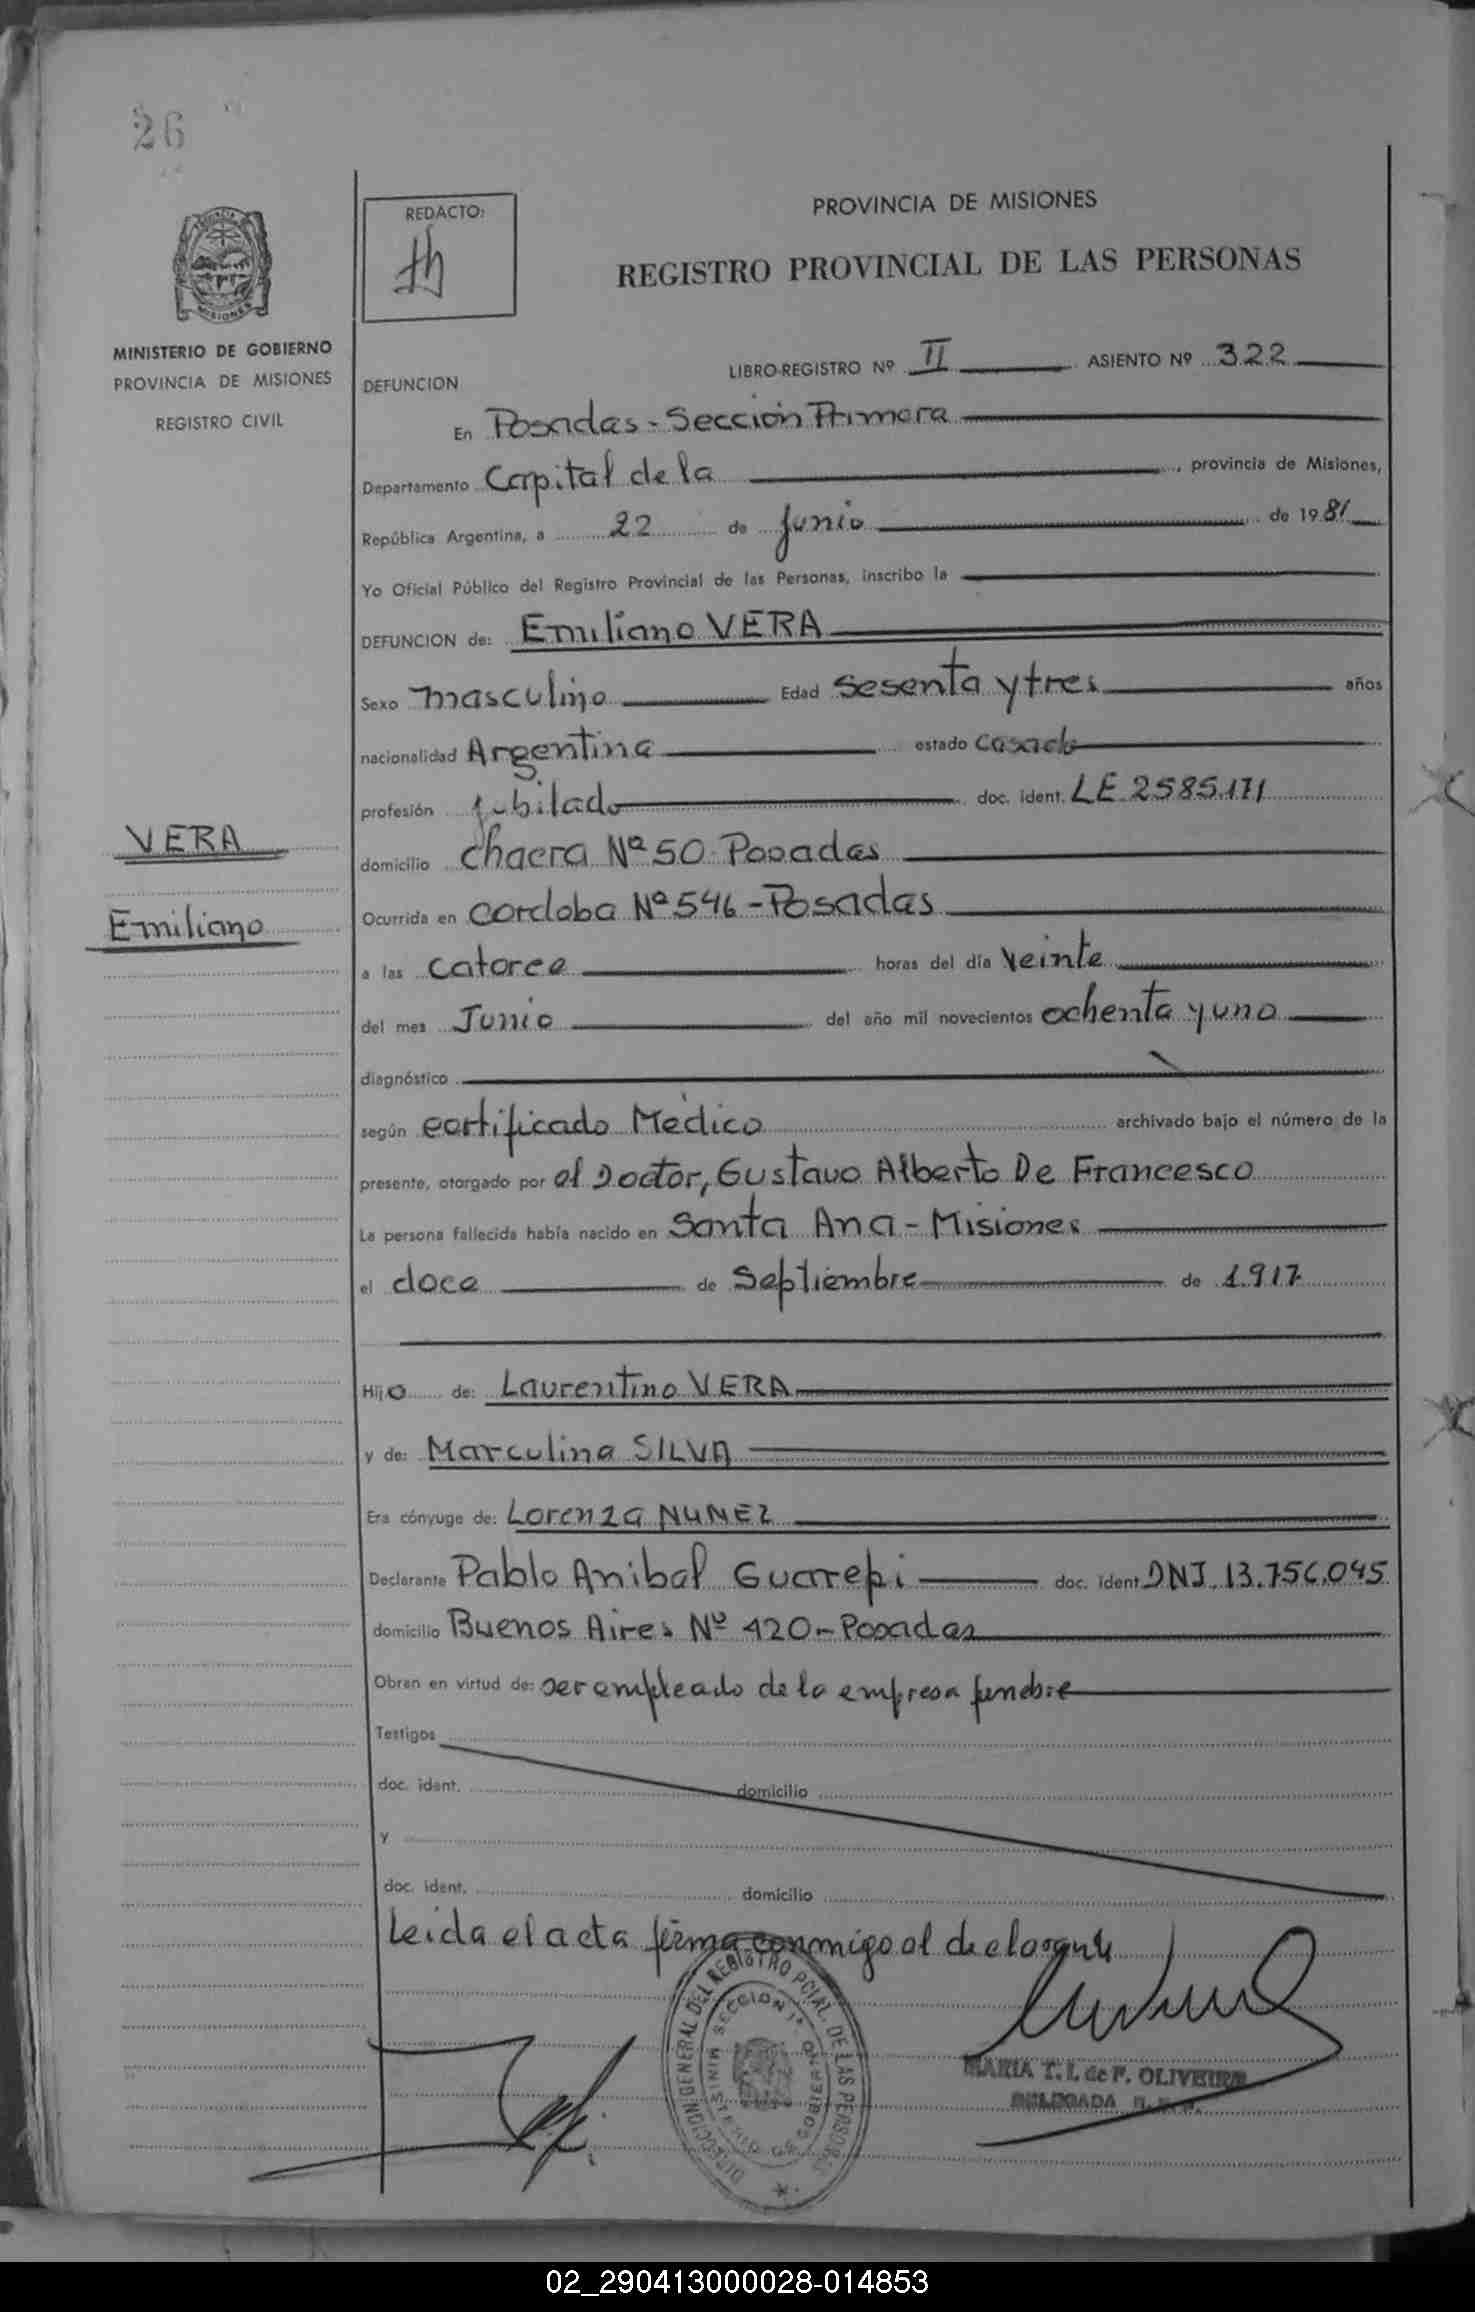 26
REDACTO:
PROVINCIA DE MISIONES
REGISTRO PROVINCIAL DE LAS PERSONAS
MISIONES
MINISTERIO DE GOBIERNO
PROVINCIA DE MISIONES
REGISTRO CIVIL
LIBRO-REGISTRO Nº II ASIENTO Nº 322
DEFUNCION
En Posadas - Sección Primera
Departamento Capital de la, provincia de Misiones,
República Argentina, a 22 de Junio de 1981
Yo Oficial Público del Registro Provincial de las Personas, inscribo la
DEFUNCION de: Emiliano VERA
Sexo masculino Edad sesenta y tres años
nacionalidad Argentina estado casado
profesión jubilado doc. ident. LE 2585.171
VERA
domicilio chacra Nº 50 - Posadas
Emiliano
Ocurrida en cordoba Nº 546 - Posadas
a las catorce horas del día veinte
del mes Junio del año mil novecientos ochenta y uno
diagnóstico
según certificado Médico archivado bajo el número de la
presente, otorgado por el Doctor, Gustavo Alberto De Francesco
La persona fallecida había nacido en Santa Ana - Misiones
el doce de Septiembre de 1917
Hijo de: Laurentino VERA
y de: Marculina SILVA
Era cónyuge de: Lorenza NUNEZ
Declarante Pablo Anibal Guarepi doc. ident. DNI. 13.756.045
domicilio Buenos Aires Nº 420 - Posadas
Obran en virtud de: ser empleado de la empresa funebre
Testigos
doc. ident. domicilio
y
doc. ident. domicilio
Leida el acta firma conmigo el declarante
DIRECCION GENERAL DEL REGISTRO PCIAL. DE LAS PERSONAS
SECCION 1ª
MINISTERIO DE GOBIERNO
MARIA T. I. de F. OLIVEIRA
DELEGADA
02_290413000028-014853